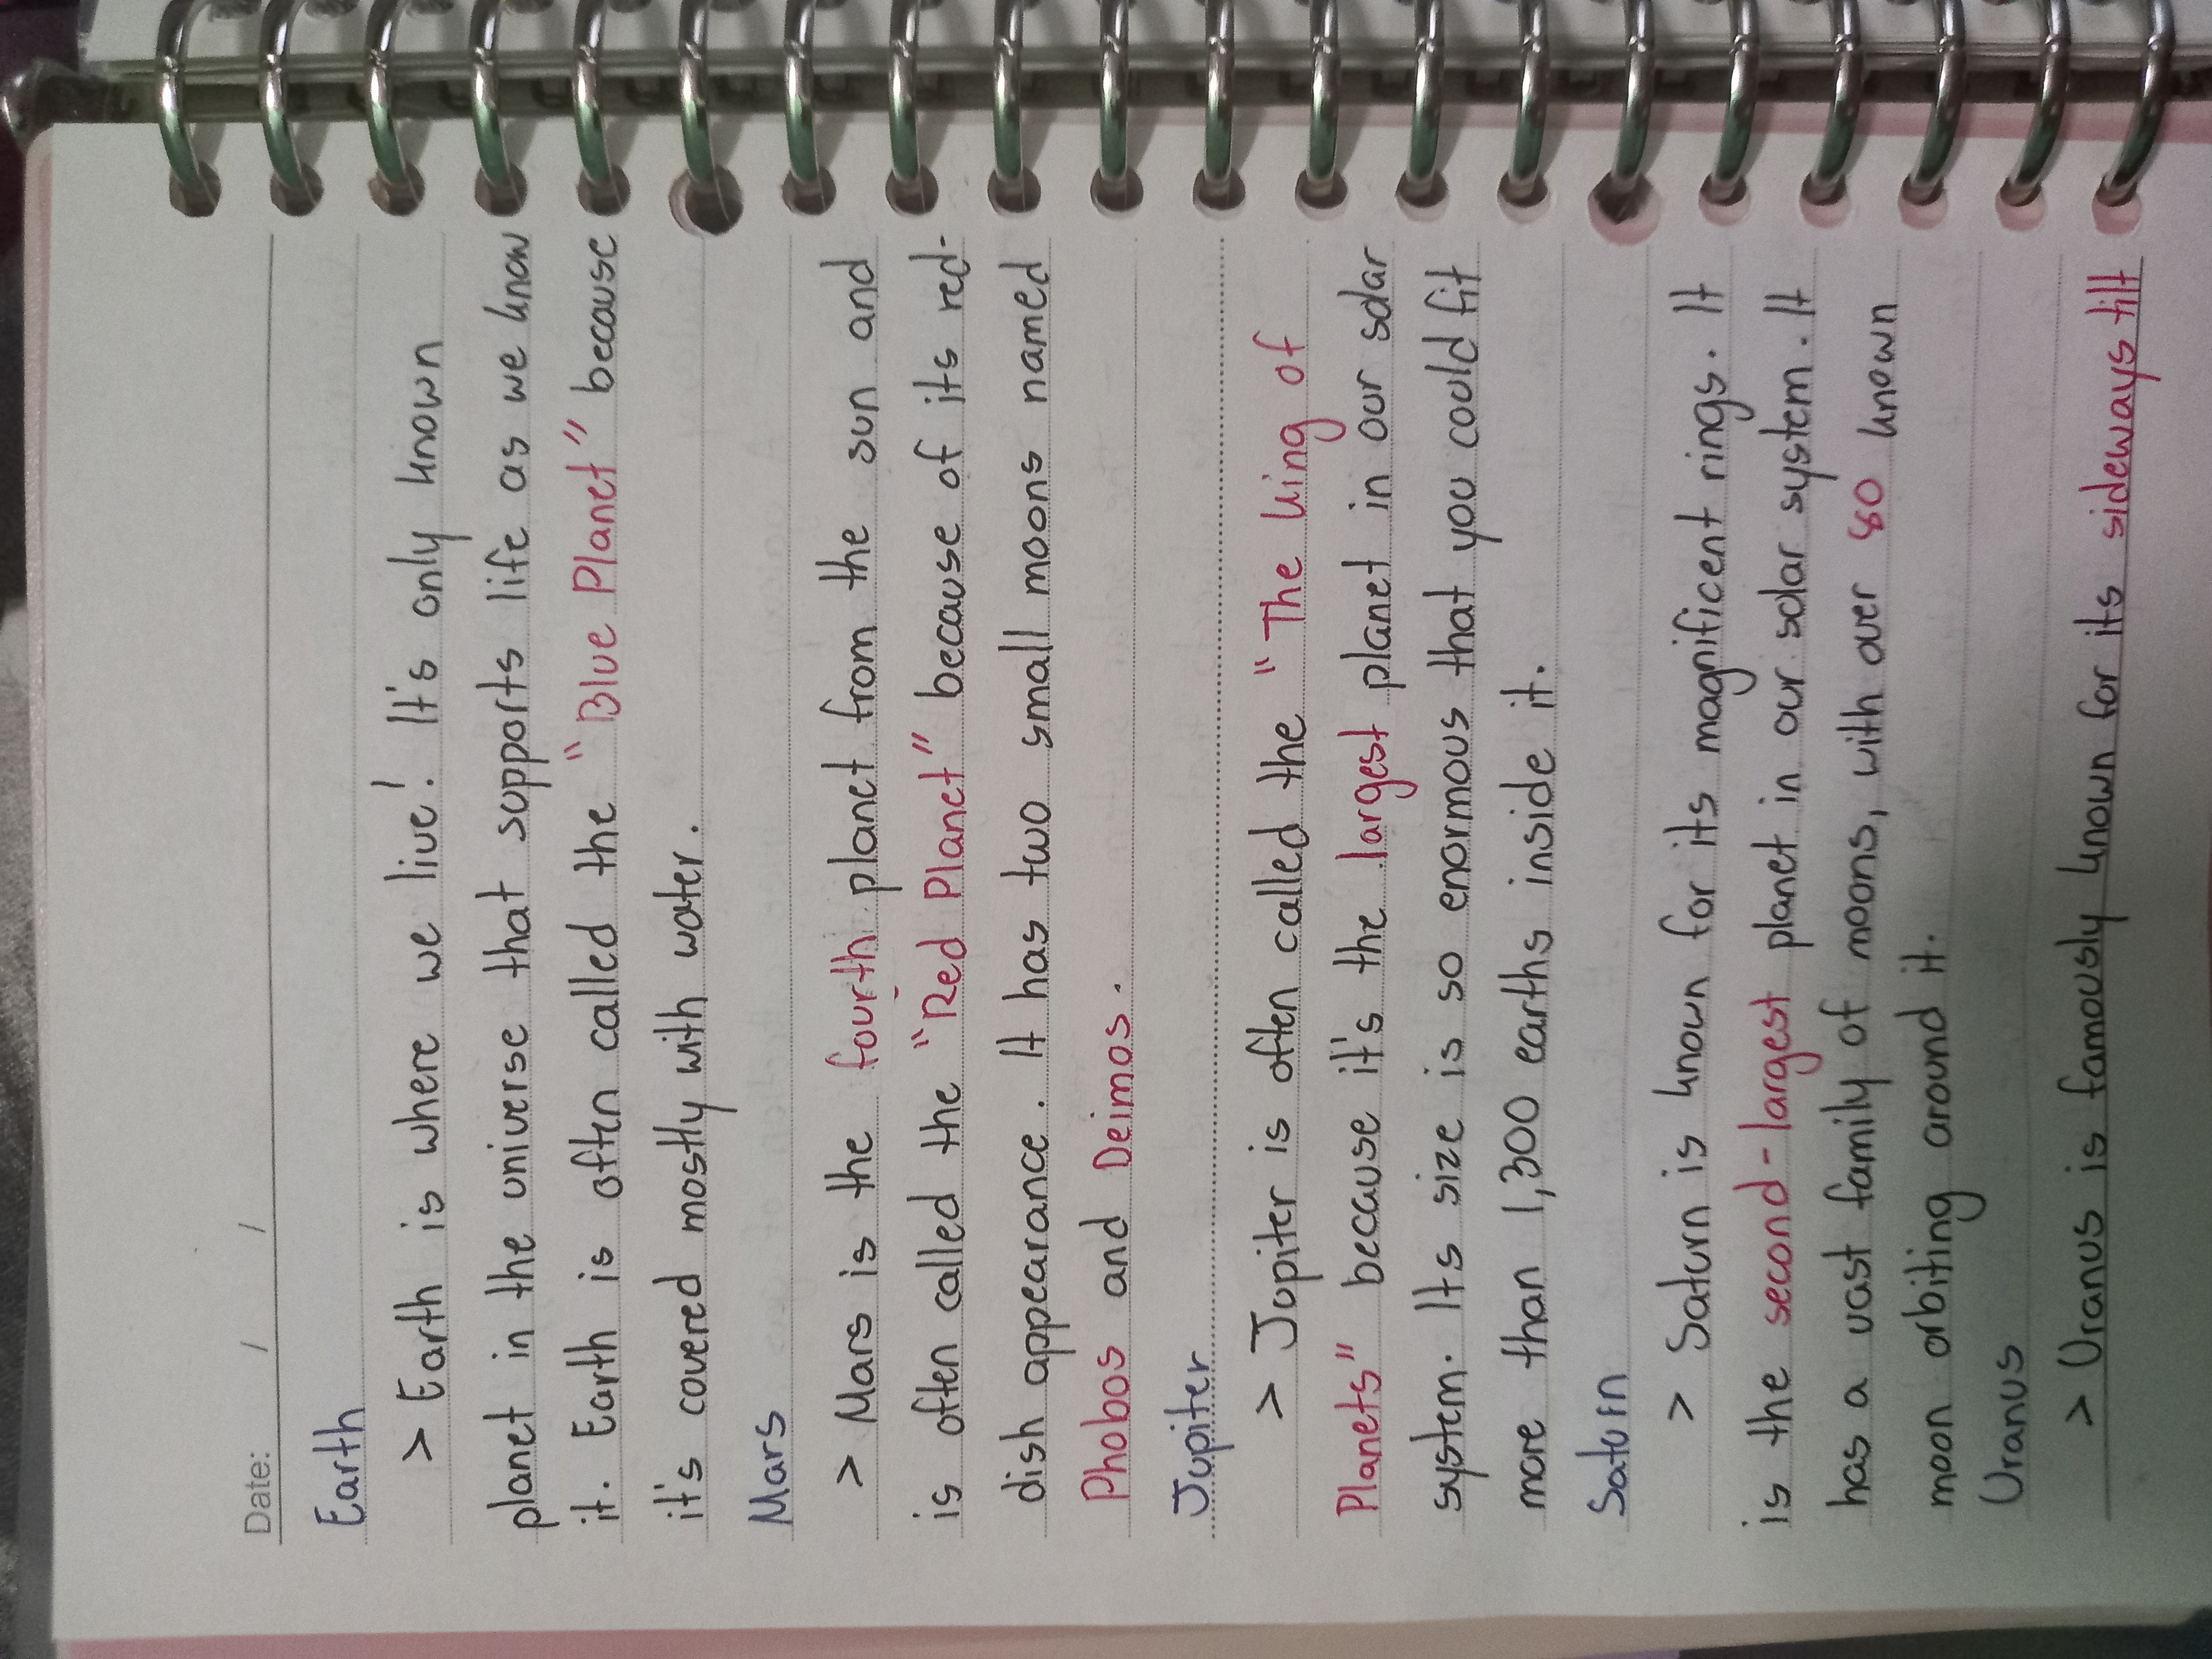 Date: / /
Earth
> Earth is where we live! It's only known
planet in the universe that supports life as we know
it. Earth is often called the "Blue Planet" because
it's covered mostly with water.
Mars
> Mars is the fourth planet from the sun and
is often called the "Red Planet" because of its red-
dish appearance. It has two small moons named
Phobos and Deimos.
Jupiter
> Jupiter is often called the "The King of
Planets" because it's the largest planet in our solar
system. Its size is so enormous that you could fit
more than 1,300 earths inside it.
Saturn
> Saturn is known for its magnificent rings. It
is the second-largest planet in our solar system. It
has a vast family of moons, with over 80 known
moon orbiting around it.
Uranus
> Uranus is famously known for its sideways tilt